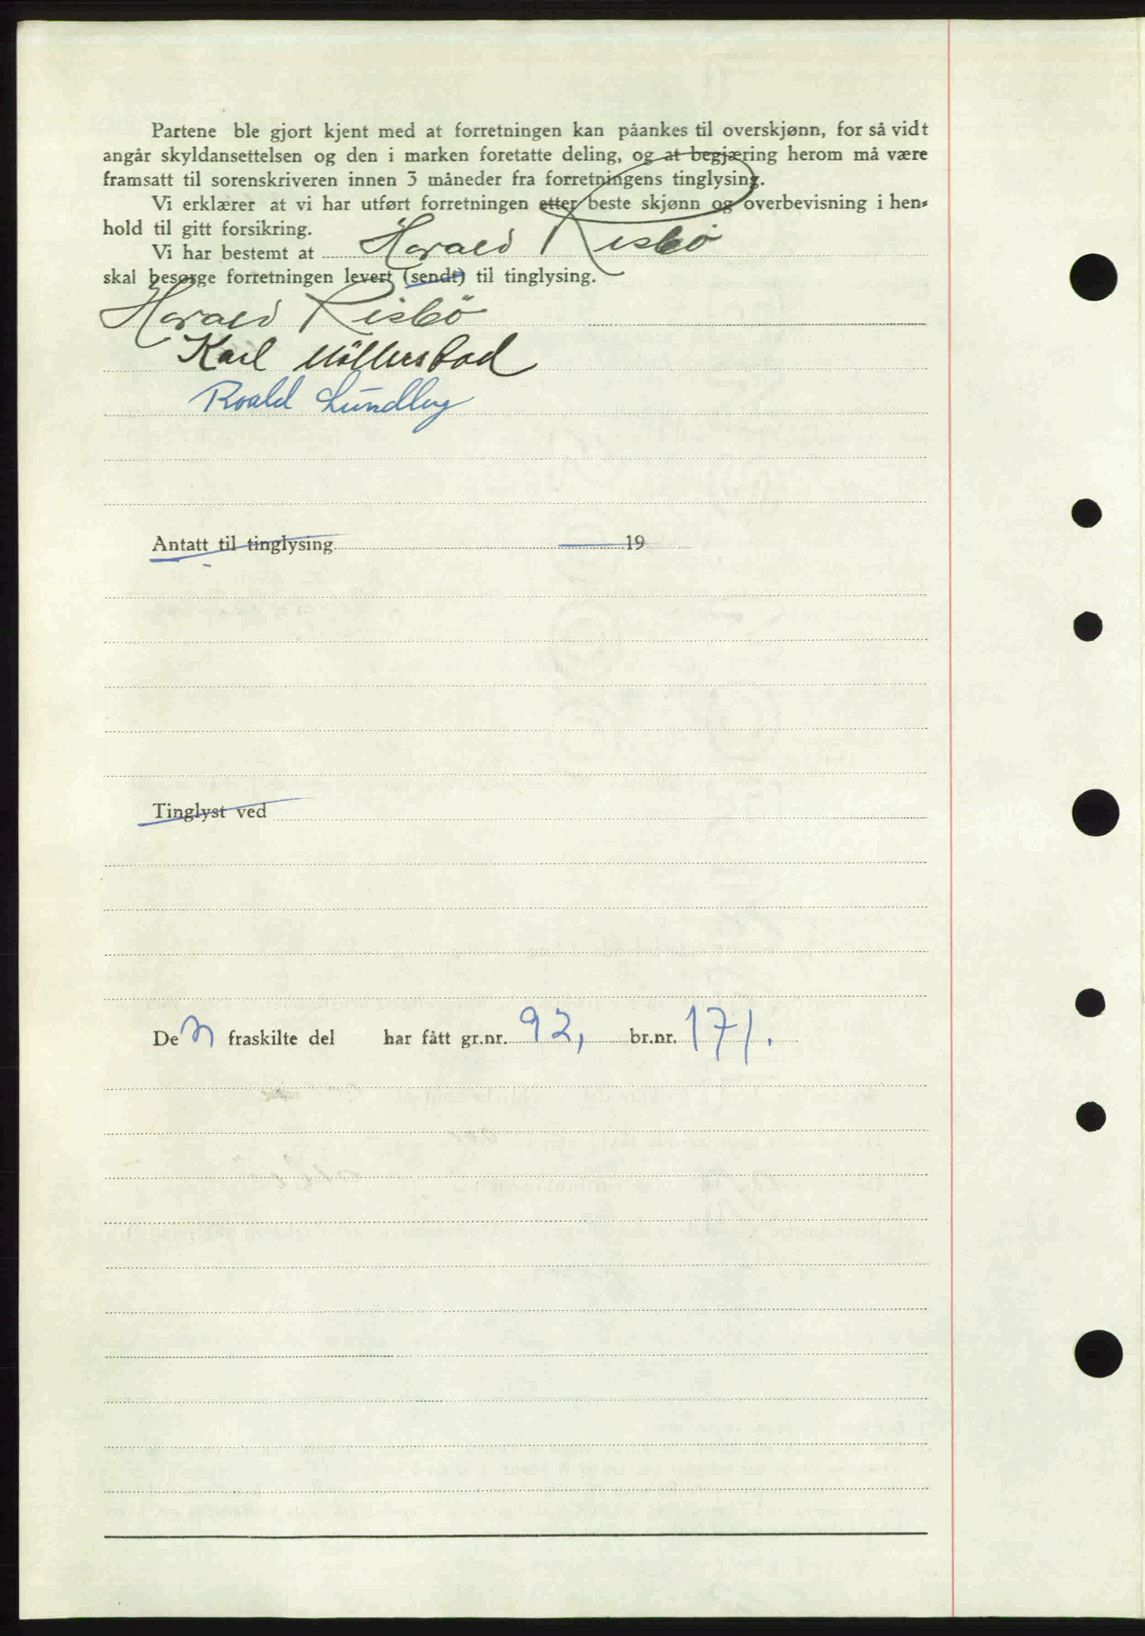 Partene ble gjort kjent med at forretningen kan påankes til overskjønn, for så vidt
angår skyldansettelsen og den i marken foretatte deling, og at begjæring herom må være
framsatt til sorenskriveren innen 3 måneder fra forretningens tinglysing.
Vi erklærer at vi har utført forretningen etter beste skjønn og overbevisning i hen-
hold til gitt forsikring.
Vi har bestemt at Harald Risbö
skal besørge forretningen levert (sendt) til tinglysing.
Harald Risbö
Karl Möllerstad
Roald Lundby
Antatt til tinglysing 19
Tinglyst ved
Den fraskilte del har fått gr.nr. 92, br.nr. 171.